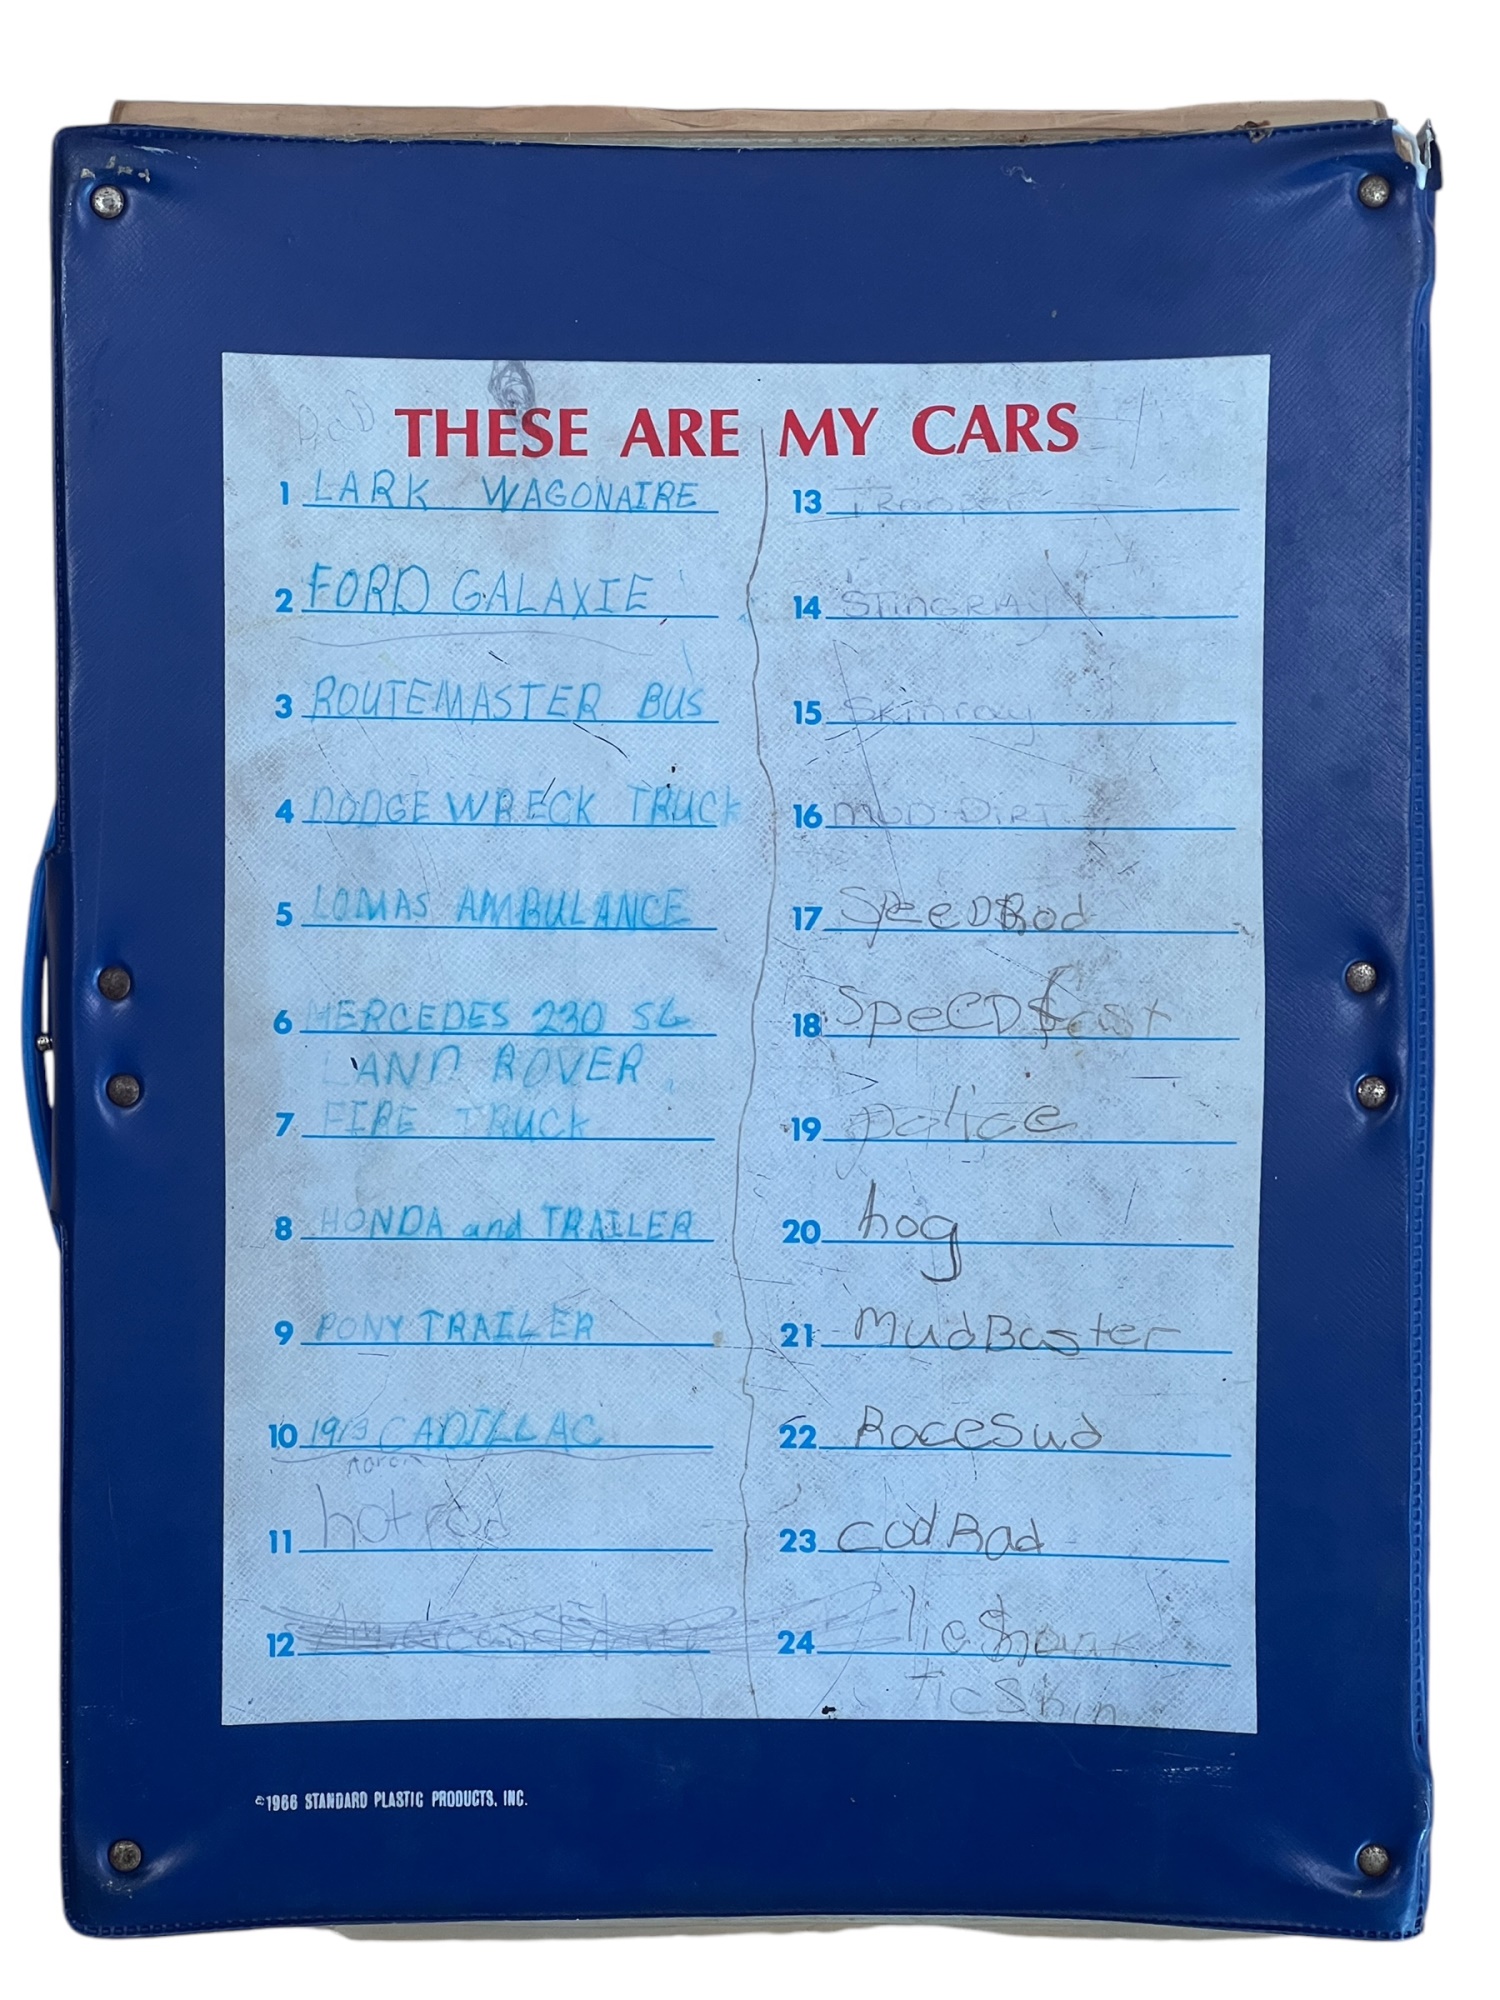 THESE ARE MY CARS
1 LARK WAGONAIRE
2 FORD GALAXIE
3 ROUTEMASTER BUS
4 DODGE WRECK TRUCK
5 LOMAS AMBULANCE
6 MERCEDES 230 SL
LAND ROVER
7 FIRE TRUCK
8 HONDA and TRAILER
9 PONY TRAILER
10 1913 CADILLAC
Aaron
11 hotrod
12
13 Trooper
14 STINGRAY
15
16 MUD DIRT
17 SpeeDRod
18 SpeeDfast
19 police
20 hog
21 MudBaster
22
23
24
©1966 STANDARD PLASTIC PRODUCTS, INC.